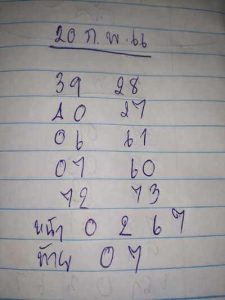 20 ก.พ.66
39 28
40 27
06 61
07 60
72 73
หน้า 0 2 6 7
ท้าย 0 7